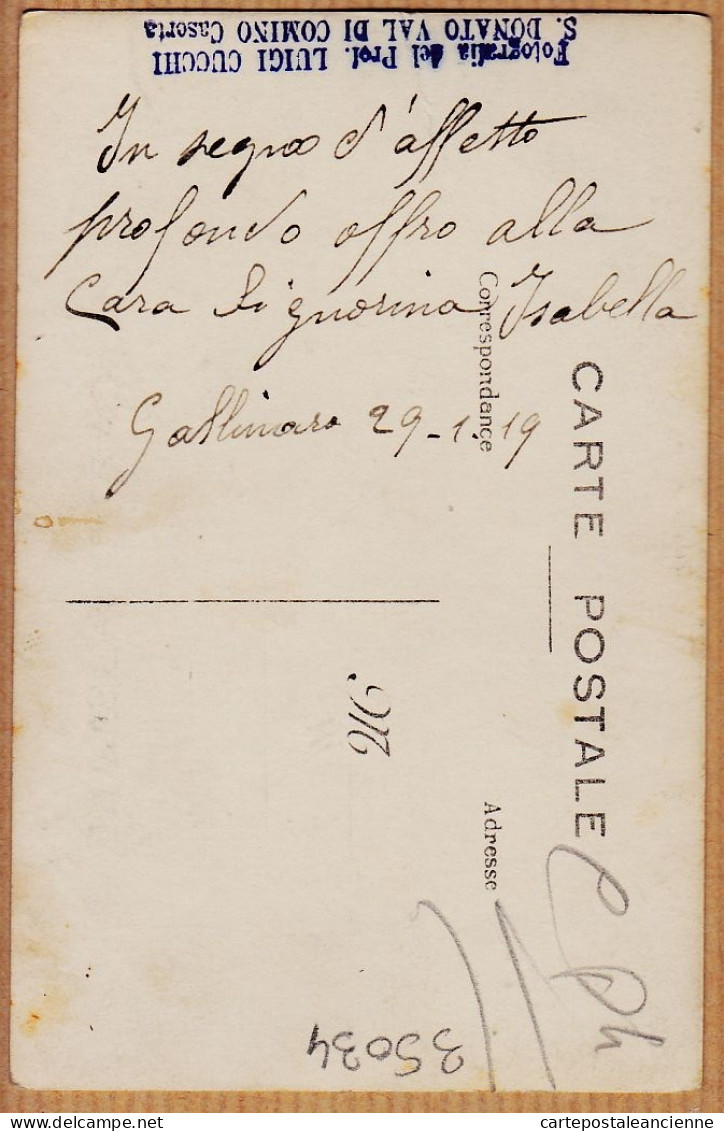 Fotografia del Prof. LUIGI CUCCHI
S. DONATO VAL DI COMINO Caserta
In segno d'affetto
profondo offro alla
Cara Signorina Isabella
Gallinaro 29-1.19
CARTE POSTALE
Correspondance
Adresse
M
35034
delcampe.net
cartepostaleancienne